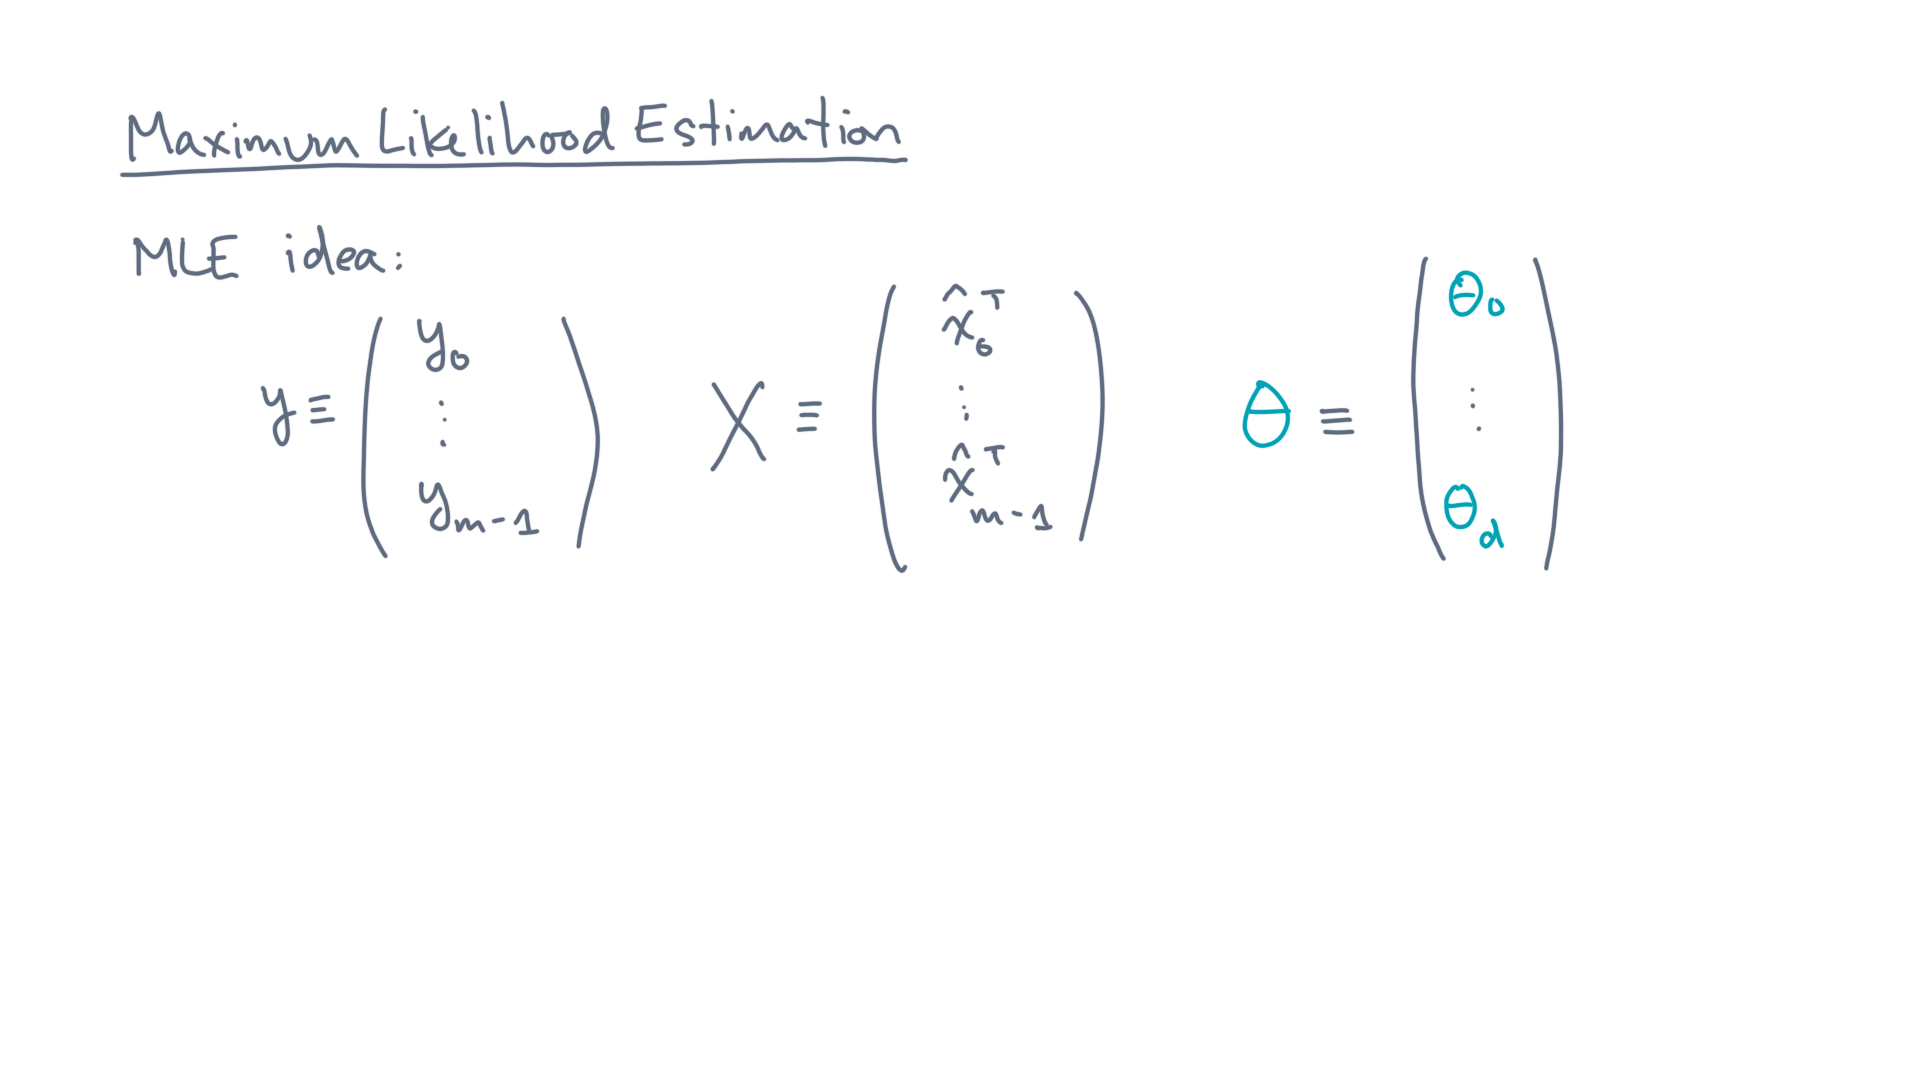 Maximum Likelihood Estimation
MLE idea:
y ≡ ( y₀ ⋮ yₘ₋₁ ) X ≡ ( x̂₀ᵀ ⋮ x̂ₘ₋₁ᵀ ) θ ≡ ( θ₀ ⋮ θ_d )